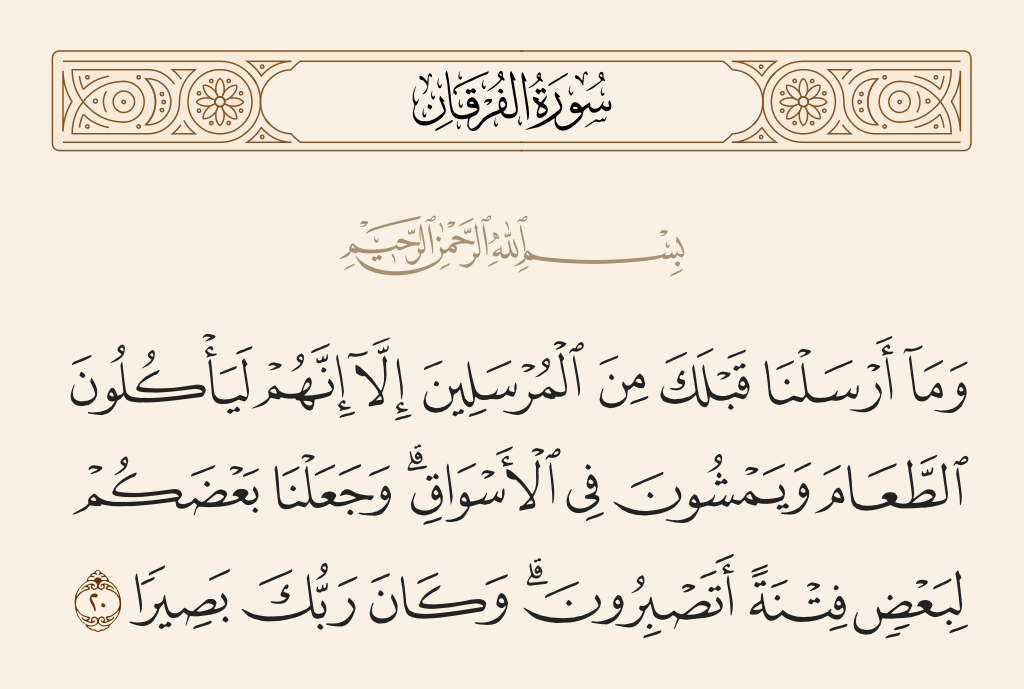 سُورَةُ الفُرْقَانِ
بِسْمِ ٱللَّهِ ٱلرَّحْمَٰنِ ٱلرَّحِيمِ
وَمَآ أَرْسَلْنَا قَبْلَكَ مِنَ ٱلْمُرْسَلِينَ إِلَّآ إِنَّهُمْ لَيَأْكُلُونَ
ٱلطَّعَامَ وَيَمْشُونَ فِى ٱلْأَسْوَاقِ ۗ وَجَعَلْنَا بَعْضَكُمْ
لِبَعْضٍ فِتْنَةً أَتَصْبِرُونَ ۗ وَكَانَ رَبُّكَ بَصِيرًا ٢٠